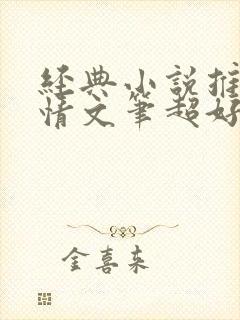 經典小說推
情文筆超好
金喜来